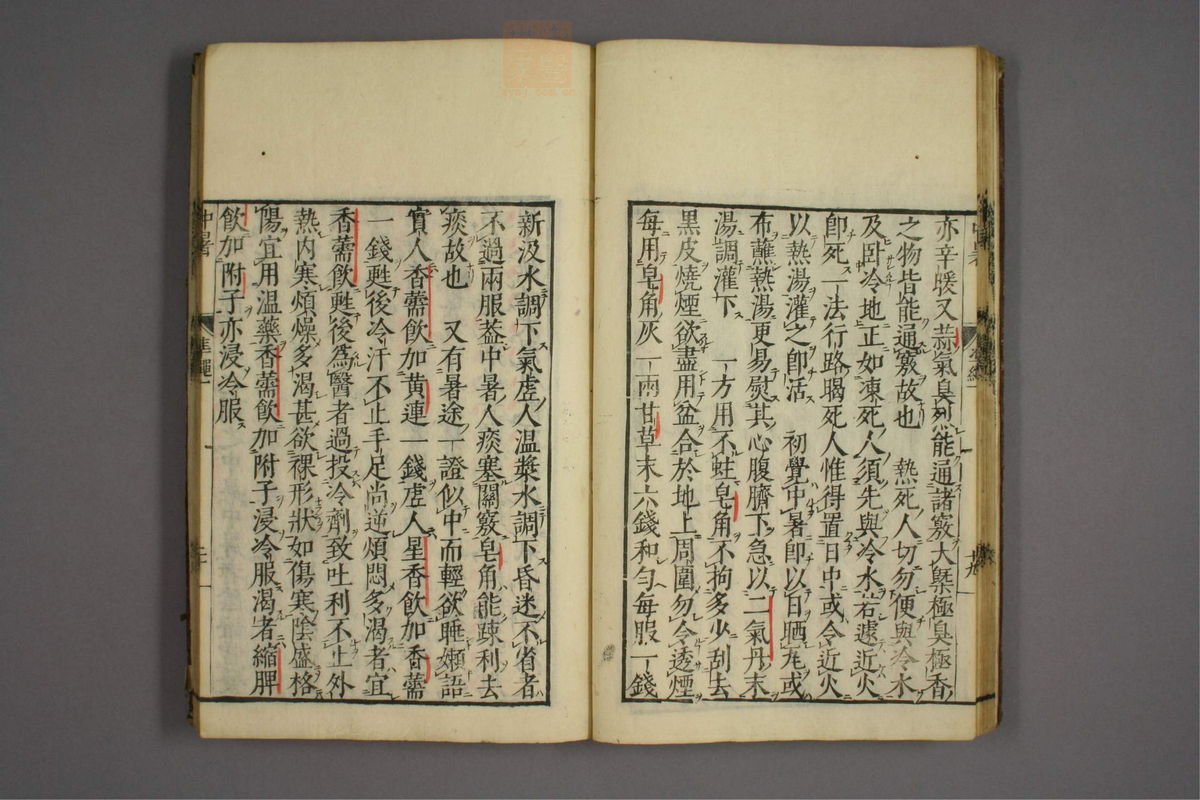 亦辛暖又蒜氣臭烈能通諸竅大槩極臭極香
之物皆能通竅故也　熱死人切勿便與冷水
及臥冷地正如凍死人須先與冷水若遽近火
卽死　一法行路暍死人惟得置日中或令近火
以熱湯灌之卽活　初覺中暑卽以日晒瓦或
布蘸熱湯更易熨其心腹臍下急以二氣丹末
湯調灌下　一方用不蛀皂角不拘多少刮去
黑皮燒煙欲盡用盆合於地上周圍勿令透煙
每用皂角灰一兩甘草末六錢和勻每服一錢
新汲水調下氣虛人温漿水調下昏迷不省者
不過兩服蓋中暑人痰塞關竅皂角能疎利去
痰故也　又有暑途一證似中而輕欲睡嬾語
實人香薷飲加黃連一錢虛人星香飲加香薷
一錢甦後冷汗不止手足尚逆煩悶多渴者宜
香薷飲甦後爲醫者過投冷劑致吐利不止外
熱内寒煩燥多渴甚欲裸形狀如傷寒陰盛格
陽宜用温藥香薷飲加附子浸冷服渴者縮脾
飲加附子亦浸冷服
中暑